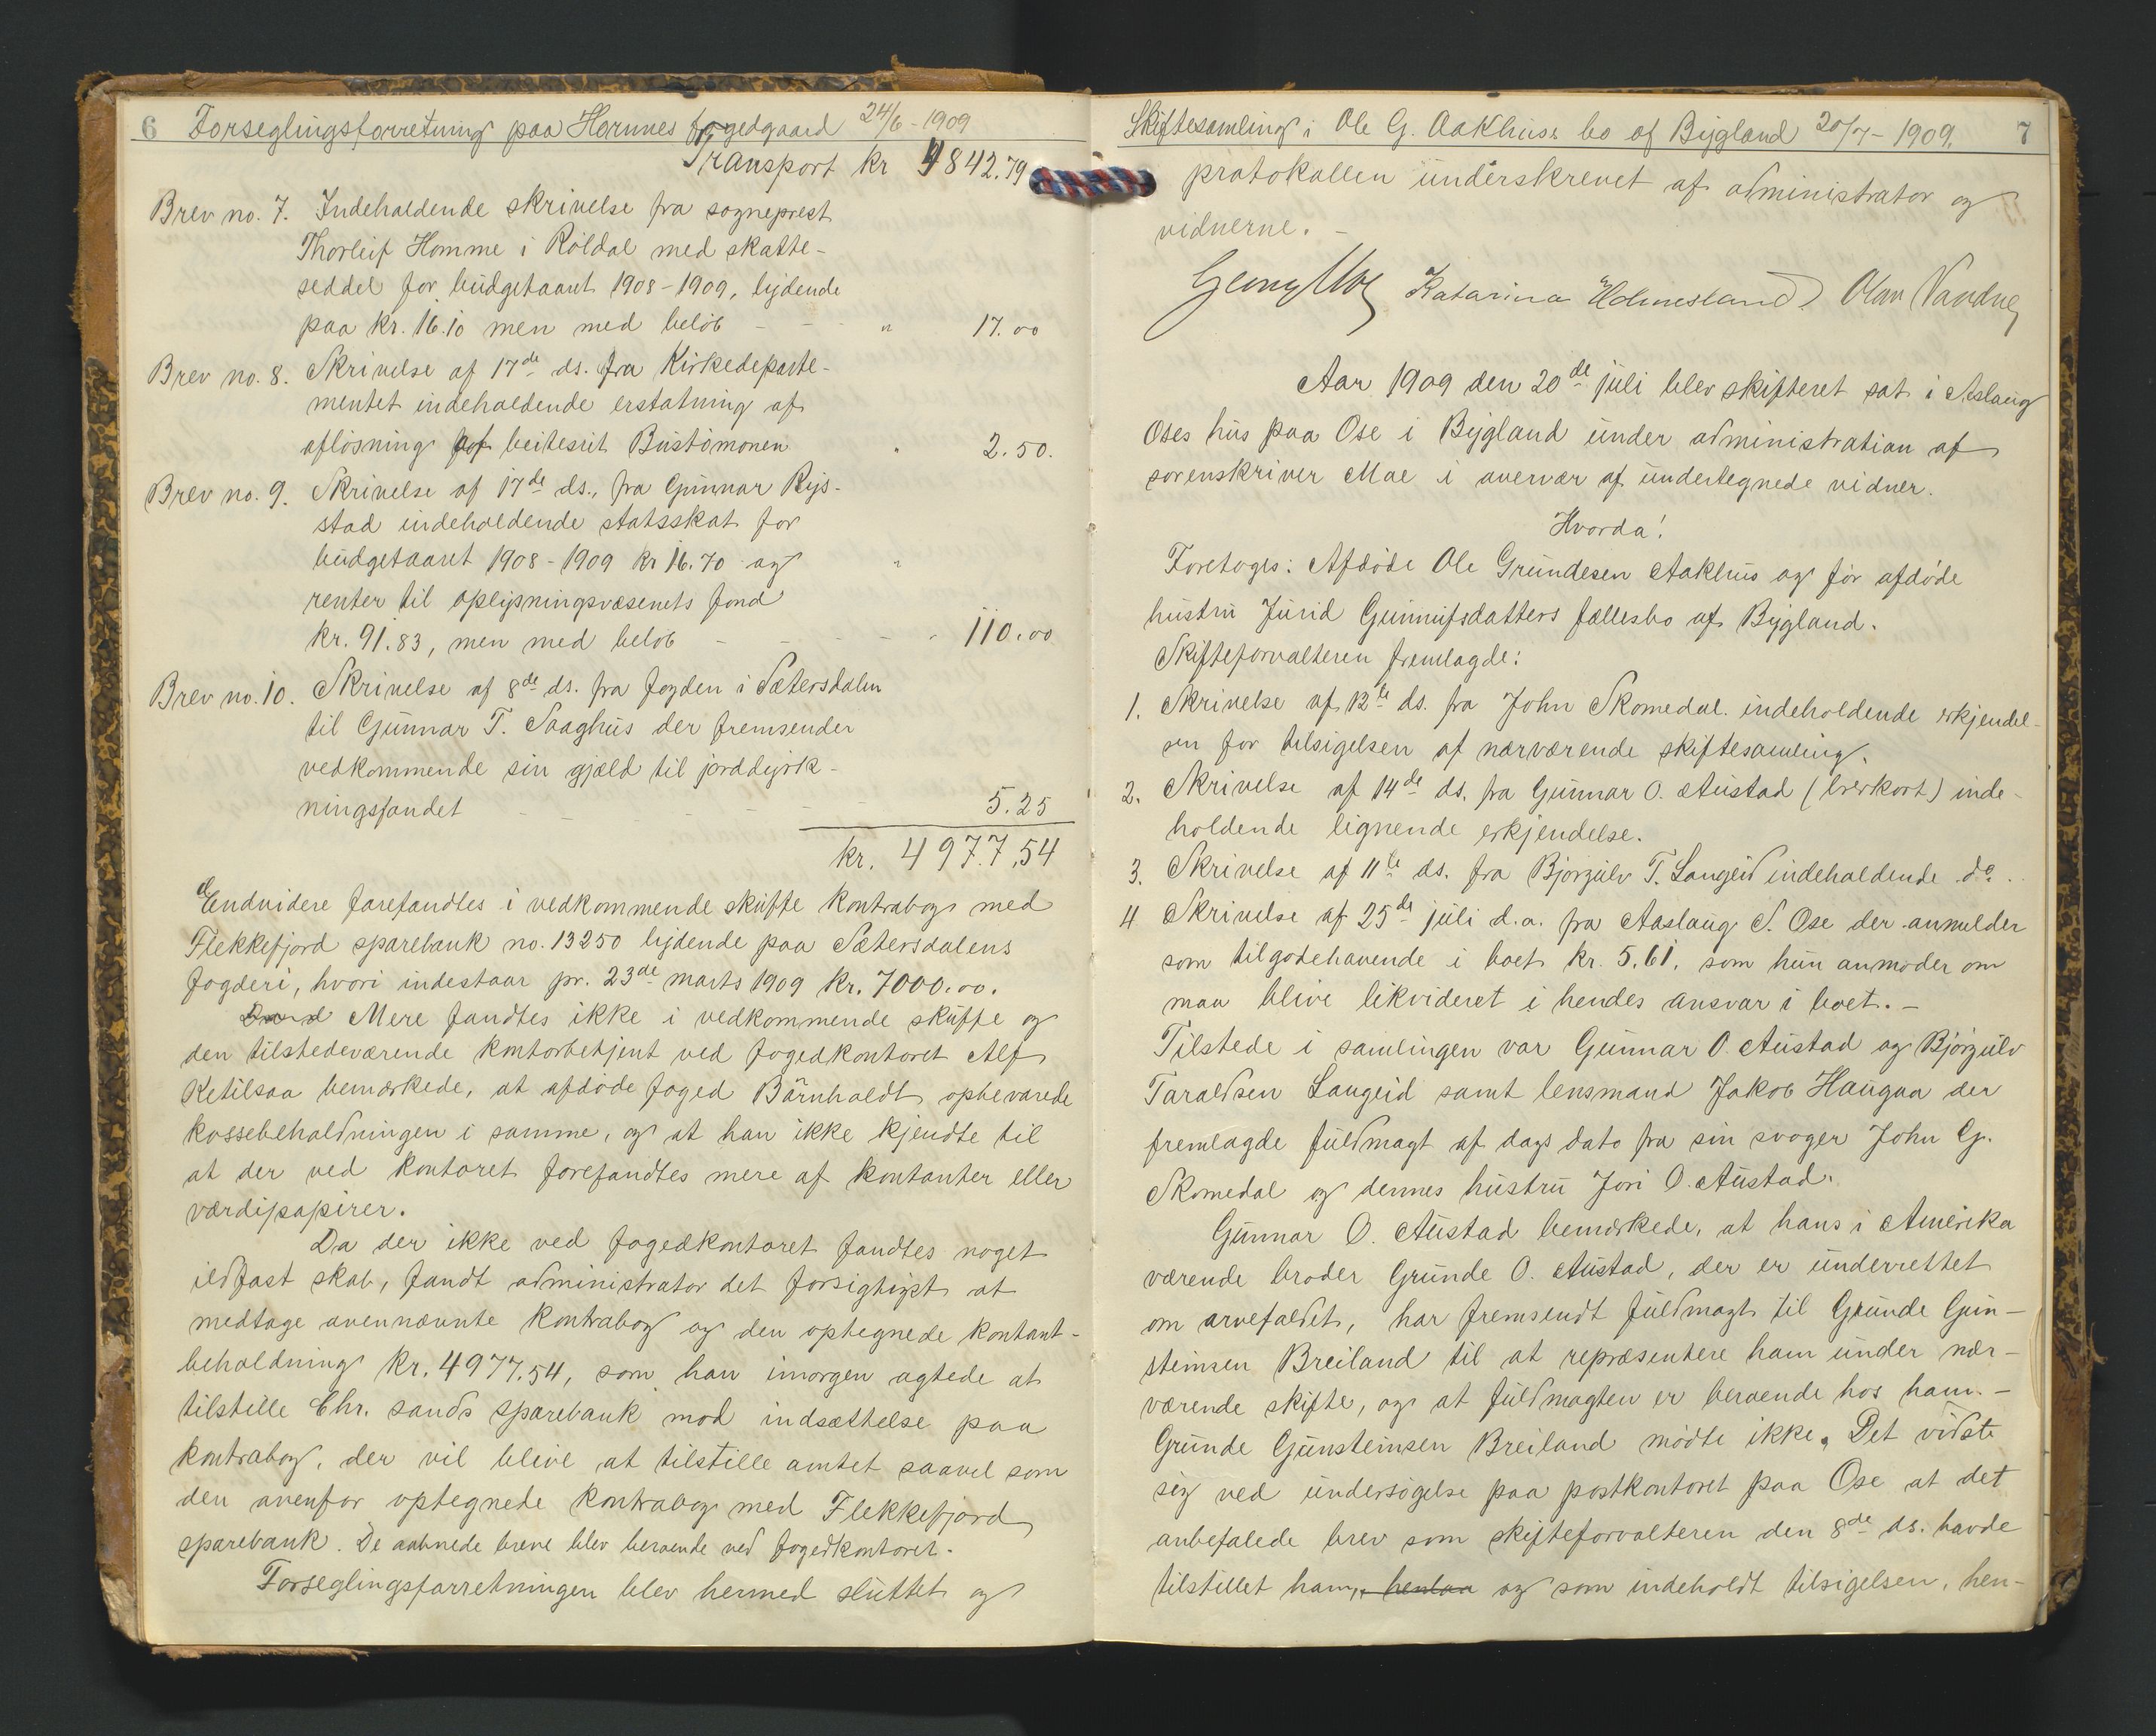 6 Forseglingsforretning paa Hornnes fogedgaard 24/6-1909
Transport kr 4842.79
Brev no. 7. Indeholdende skrivelse fra sogneprest
Thorleif Homme i Röldal med skatte-
seddel for budgetaaret 1908-1909, lydende
paa kr. 16.10 men med beløb - - - " 17.00
Brev no. 8. Skrivelse af 17de ds. fra Kirkedeparte-
mentet indeholdende erstatning af
afløsning af beitesret Bustömonen " 2.50.
Brev no. 9. Skrivelse af 17de ds., fra Gunnar Rys-
stad indeholdende statsskat for
budgetaaret 1908-1909 kr 16.70 og "
renter til oplysningsvæsenets fond
kr. 91.83, men med beløb - - - - - 110.00
Brev no. 10. Skrivelse af 8de ds. fra fogden i Sætersdalen
til Gunnar T. Saaghus der fremsender
vedkommende sin gjæld til jorddyrk-
ningsfondet - - - - - 5.25
kr. 4977,54
Endvidere forefandtes i vedkommende skuffe kontrabog med
Flekkefjord sparebank no. 13250 lydende paa Sætersdalens
fogderi, hvori indestaar pr. 23de marts 1909 kr. 7000.00.
Mere fandtes ikke i vedkommende skuffe og
den tilstedeværende kontorbetjent ved fogedkontoret Alf
Ketilsaa bemærkede, at afdøde foged Bärnholdt opbevarede
kassebeholdningen i samme, og at han ikke kjendte til
at der ved kontoret forefandtes mere af kontanter eller
værdipapirer.
Da der ikke ved fogedkontoret fandtes noget
ildfast skab, fandt administrator det forsigtigst at
medtage ovennævnte kontrabog og den optegnede kontant-
beholdning kr. 4977.54, som han imorgen agtede at
tilstille Chr. sands sparebank mod indsættelse paa
kontrabog, der vil blive at tilstille amtet saavel som
den ovenfor optegnede kontrabog med Flekkefjord
sparebank. De aabnede breve blev beroende ved fogedkontoret.
Forseglingsforretningen blev hermed sluttet og
Skiftesamling i Ole G. Aakhus's bo af Bygland 20/7-1909. 7
protokollen underskrevet af administrator og
vidnerne. -
Georg Moe Katarina Holmesland. Olav Vandne
Aar 1909 den 20de juli blev skifteret sat i Aslaug
Oses hus paa Ose i Bygland under administration af
sorenskriver Moe i overvær af undertegnede vidner.
Hvorda!
Foretoges: Afdøde Ole Grundesen Aakhus og før afdøde
hustru Jurid Gunnufsdatters fællesbo af Bygland.
Skifteforvalteren fremlagde:
1. Skrivelse af 12te ds. fra John Skomedal. indeholdende erkjendel-
sen for tilsigelsen af nærværende skiftesamling.
2. Skrivelse af 14de ds. fra Gunnar O. Austad (brevkort) inde-
holdende lignende erkjendelse.
3. Skrivelse af 11te ds. fra Bjørgulv T. Langeid indeholdende do.
4 Skrivelse af 25de juli d.a. fra Aaslaug S. Ose der anmelder
som tilgodehavende i boet kr. 5,61. som hun anmoder om
maa blive likvideret i hendes ansvar i boet. -
Tilstede i samlingen var Gunnar O. Austad og Bjørgulv
Taraldsen Langeid samt lensmand Jakob Haugaa der
fremlagde fuldmagt af dags dato fra sin svoger John G.
Skomedal og dennes hustru Jori O. Austad.
Gunnar O. Austad bemærkede, at hans i Amerika
værende broder Grunde O. Austad, der er underrettet
om arvefaldet, har fremsendt fuldmagt til Grunde Gun-
steinsen Breiland til at repræsentere ham under nær-
værende skifte, og at fuldmagten er beroende hos ham. -
Grunde Gunsteinsen Breiland mødte ikke. Det vidste
sig ved undersøgelse paa postkontoret paa Ose at det
anbefalede brev som skifteforvalteren den 8de ds. havde
tilstillet ham, henlaa og som indeholdt tilsigelsen, hen-